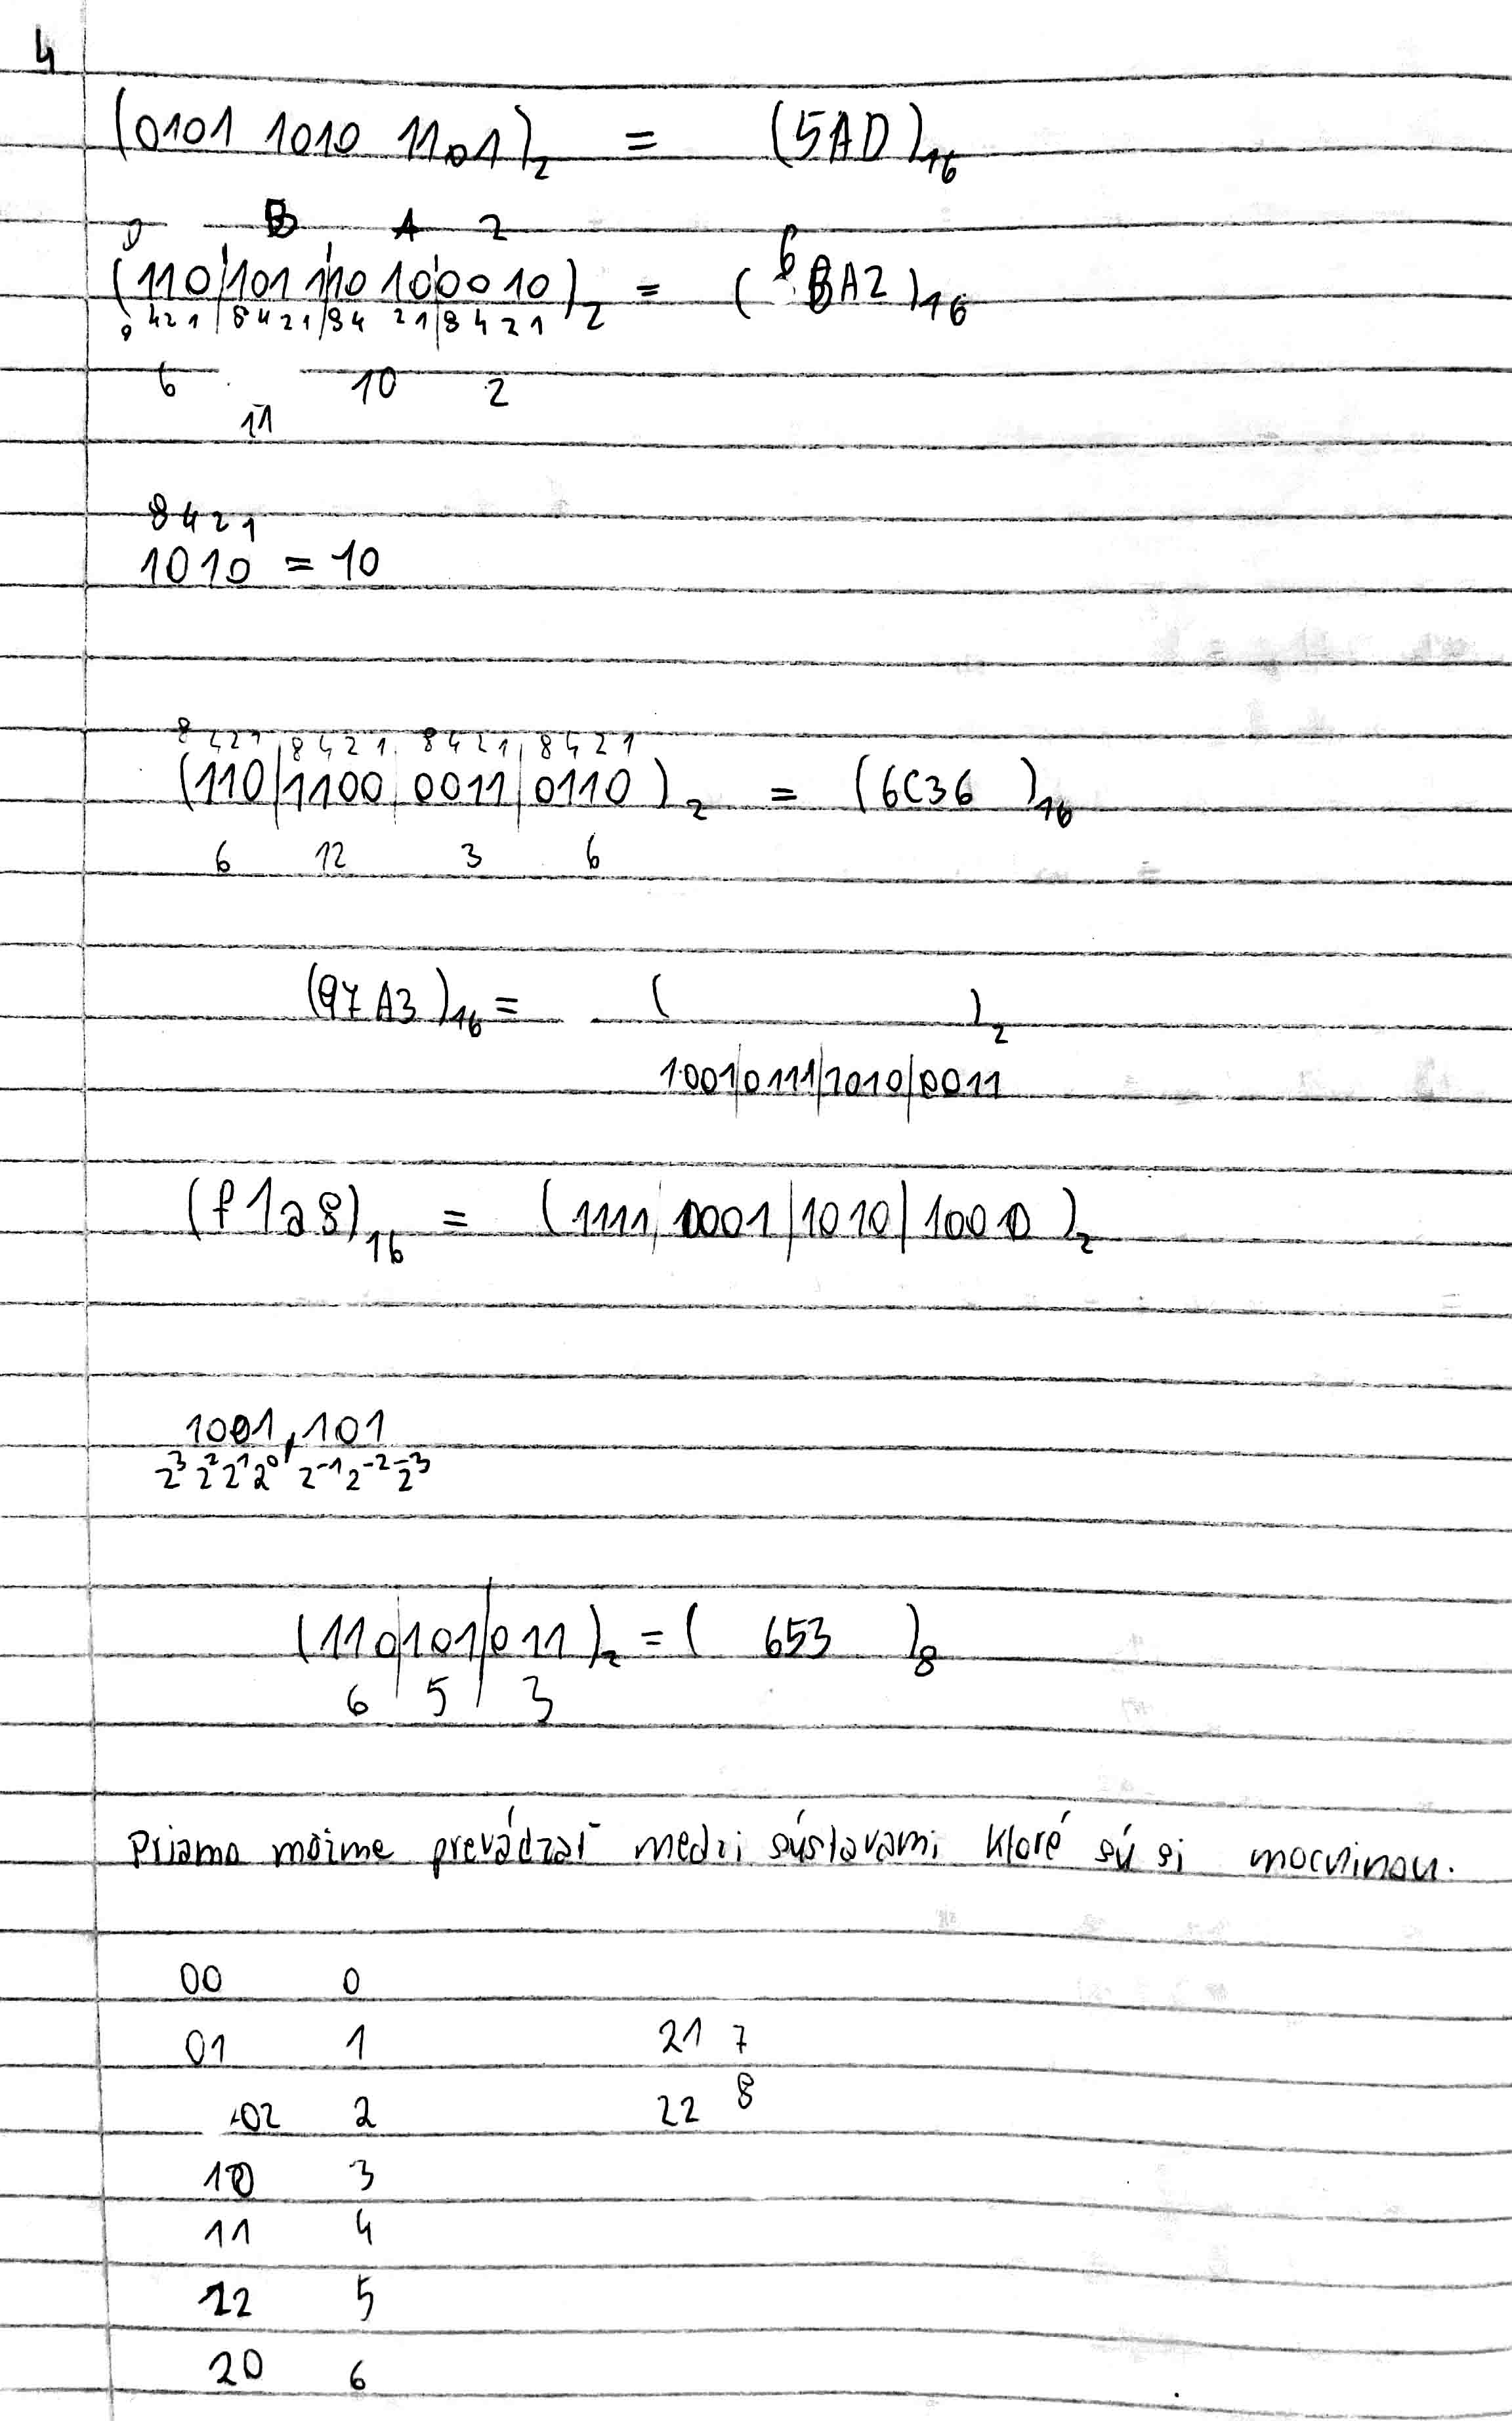 4
(0101 1010 1101)₂ = (5AD)₁₆
0 B A 2
(110|101 1|10 10|0010)₂ = (6BA2)₁₆
8 421|8421|84 21|8421
6 10 2
11
8421
1010 = 10
8 421|8421|8421|8421
(110|1100|0011|0110)₂ = (6C36)₁₆
6 12 3 6
(97A3)₁₆ = ( )₂
1001|0111|1010|0011
(f1a8)₁₆ = (1111|0001|1010|1000)₂
1001,101
2³2²2¹2⁰ 2⁻¹2⁻²2⁻³
(110|101|011)₂ = ( 653 )₈
6 | 5 | 3
Priamo môžme prevádzať medzi sústavami ktoré sú si mocninou.
00 0
01 1 21 7
02 2 22 8
10 3
11 4
12 5
20 6